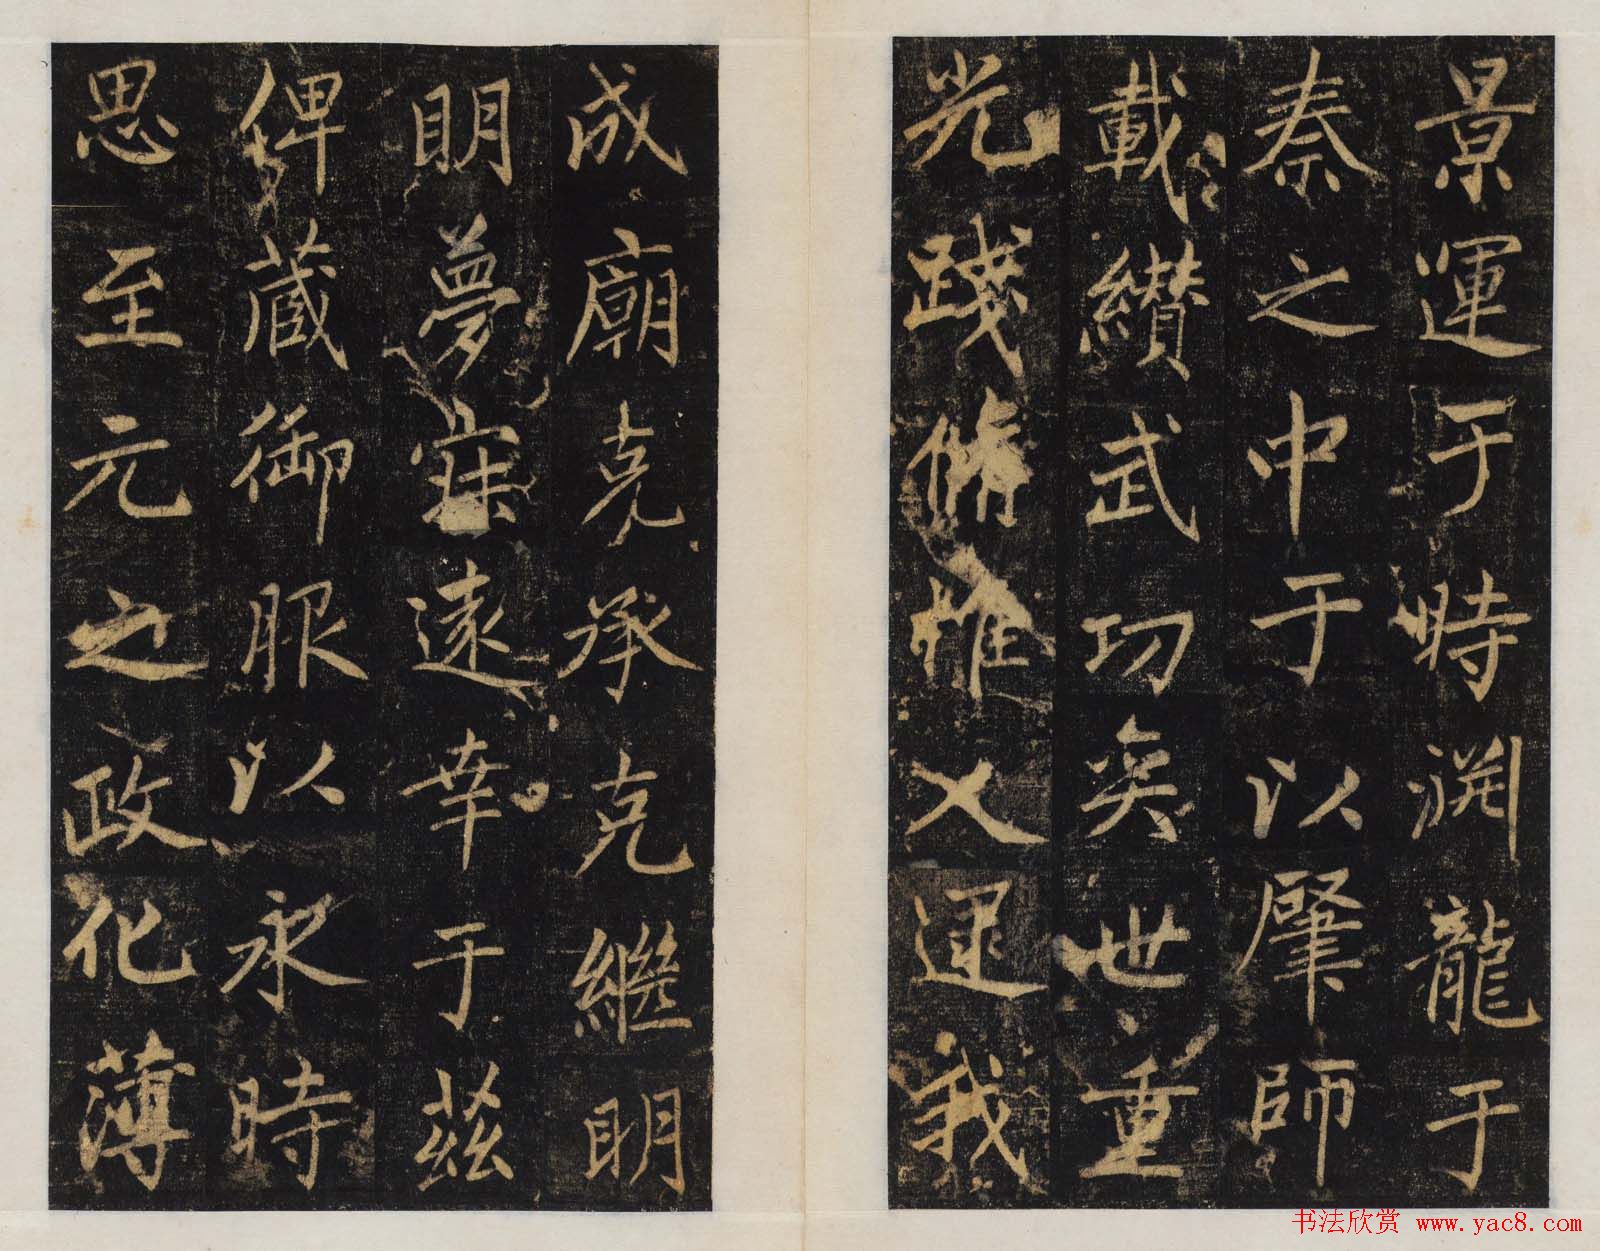 景運于時渊龍于
秦之中于以肇師
載纘武功奕世重
光踐脩惟乂逮我
成廟克承克繼明
明夢寐遠幸于茲
俾蔵御服以永時
思至元之政化薄
书法欣赏 www.yac8.com